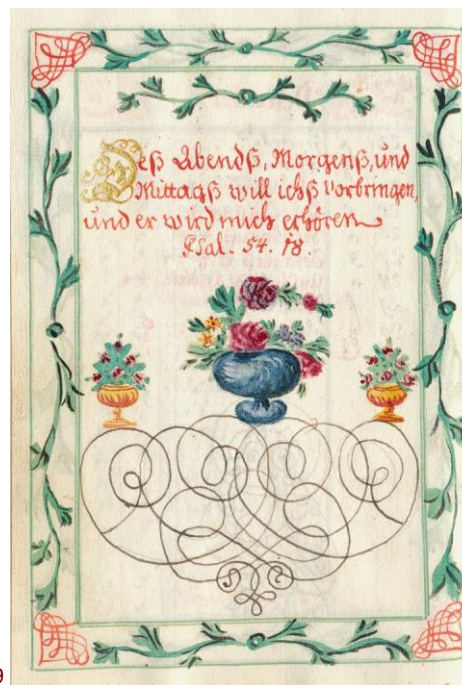 Deß Abendß, Morgenß, und
Mittagß will ichß Vorbringen,
und er wird mich erhören
Psal. 54. 18.
9